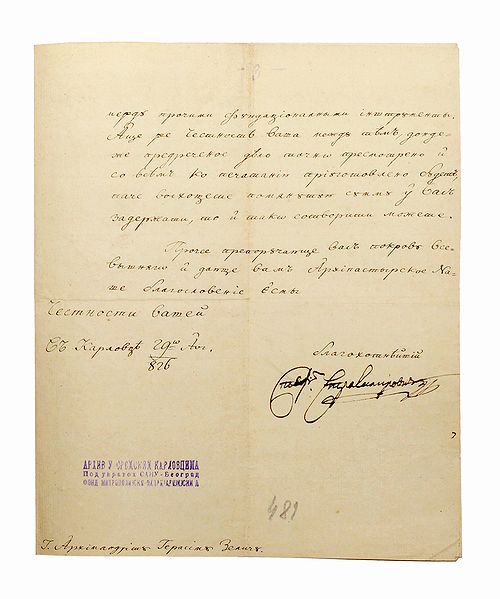 прочими фундаціоналными інструменты.
Аще же Честность Ваша между тѣмъ, донде-
же предреченое дѣло точно пресмотрено й
со всѣмъ ко печатанію пріуготовлено будетъ,
паче восхощеше сумму у Васъ
задержати, то й тако сотворити можеше.
Прочее Васъ покрову Все-
вышняго й Вамъ Архіпастырское На-
ше благословеніе Есмы
Честности Вашей
Въ Карловцѣ 29го Авг.
826
благохотнѣйшій
АРХИВ У СРЕМСКИМ КАРЛОВЦИМА
Под управом САНУ - Београд
ФОНД МИТРОПОЛИЈСКО-ПАТРИЈАРШИЈСКИ А
481
Г. Архімандріту Герасіму Зеличу.